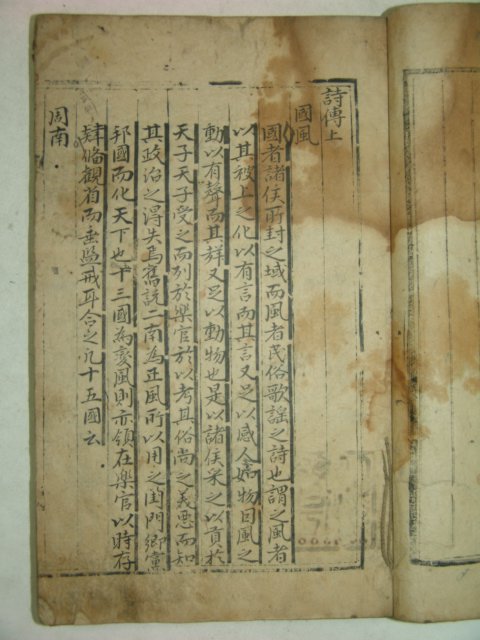 詩傳上
國風
國者諸侯所封之域而風者民俗歌謠之詩也謂之風者
以其被上之化以有言而其言又足以感人如物因風之
動以有聲而其聲又足以動物也是以諸侯采之以貢於
天子天子受之而列於樂官於以考其俗尚之美惡而知
其政治之得失焉舊說二南為正風所以用之閨門鄉黨
邦國而化天下也十三國為変風則亦領在樂官以時存
肄備觀省而垂鑑戒耳合之凡十五國云
周南